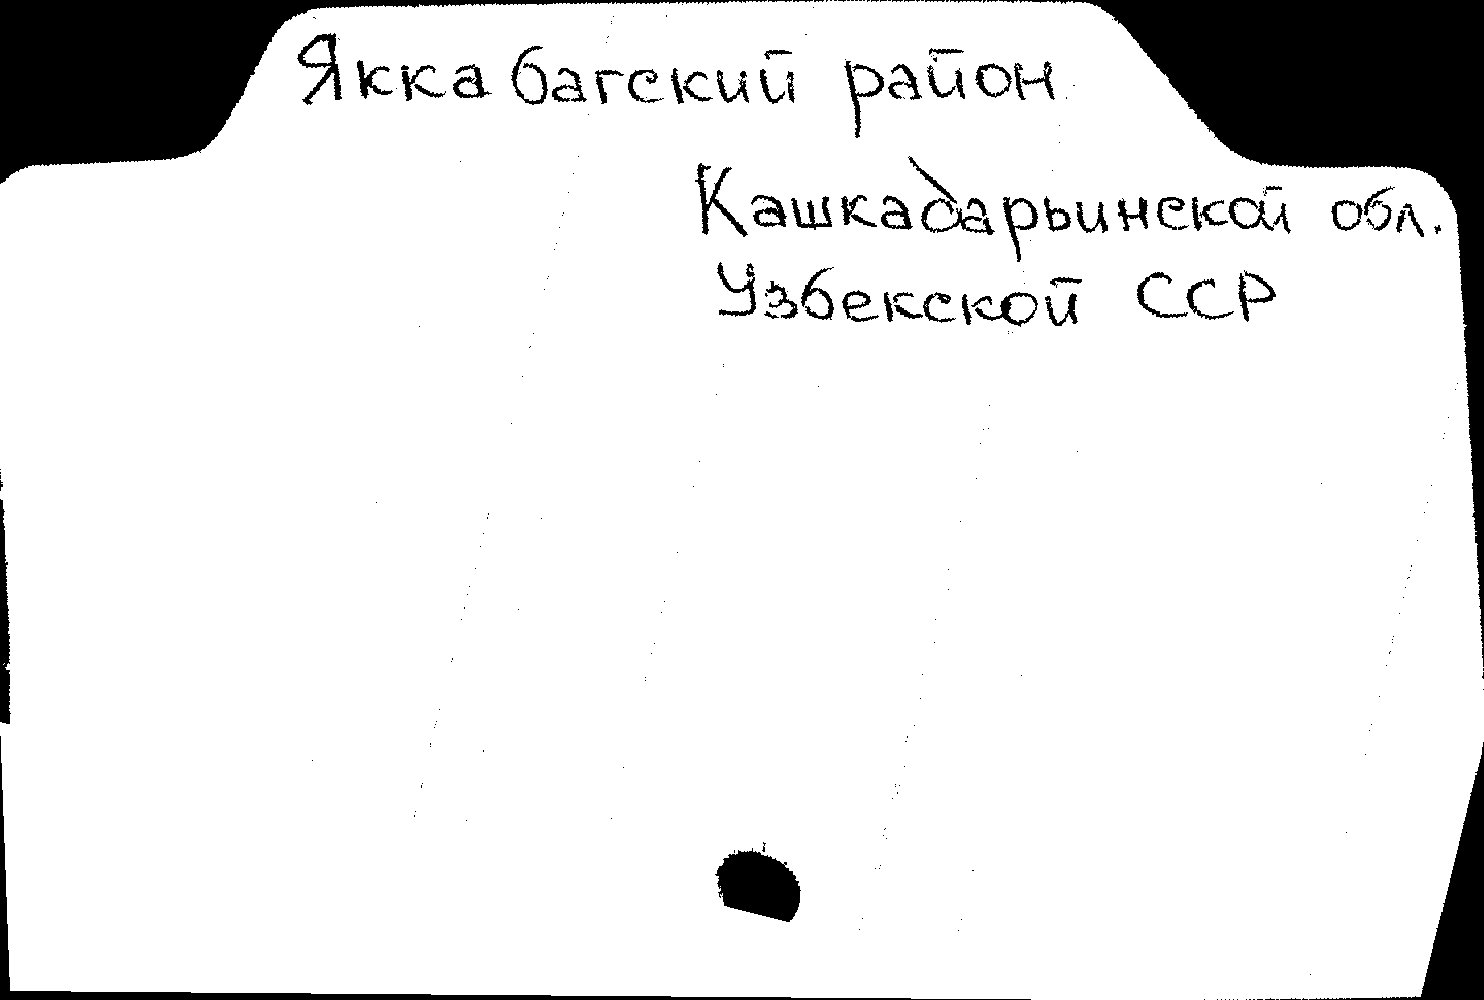 Яккабагский район
Кашкадарьинской обл.
Узбекской ССР